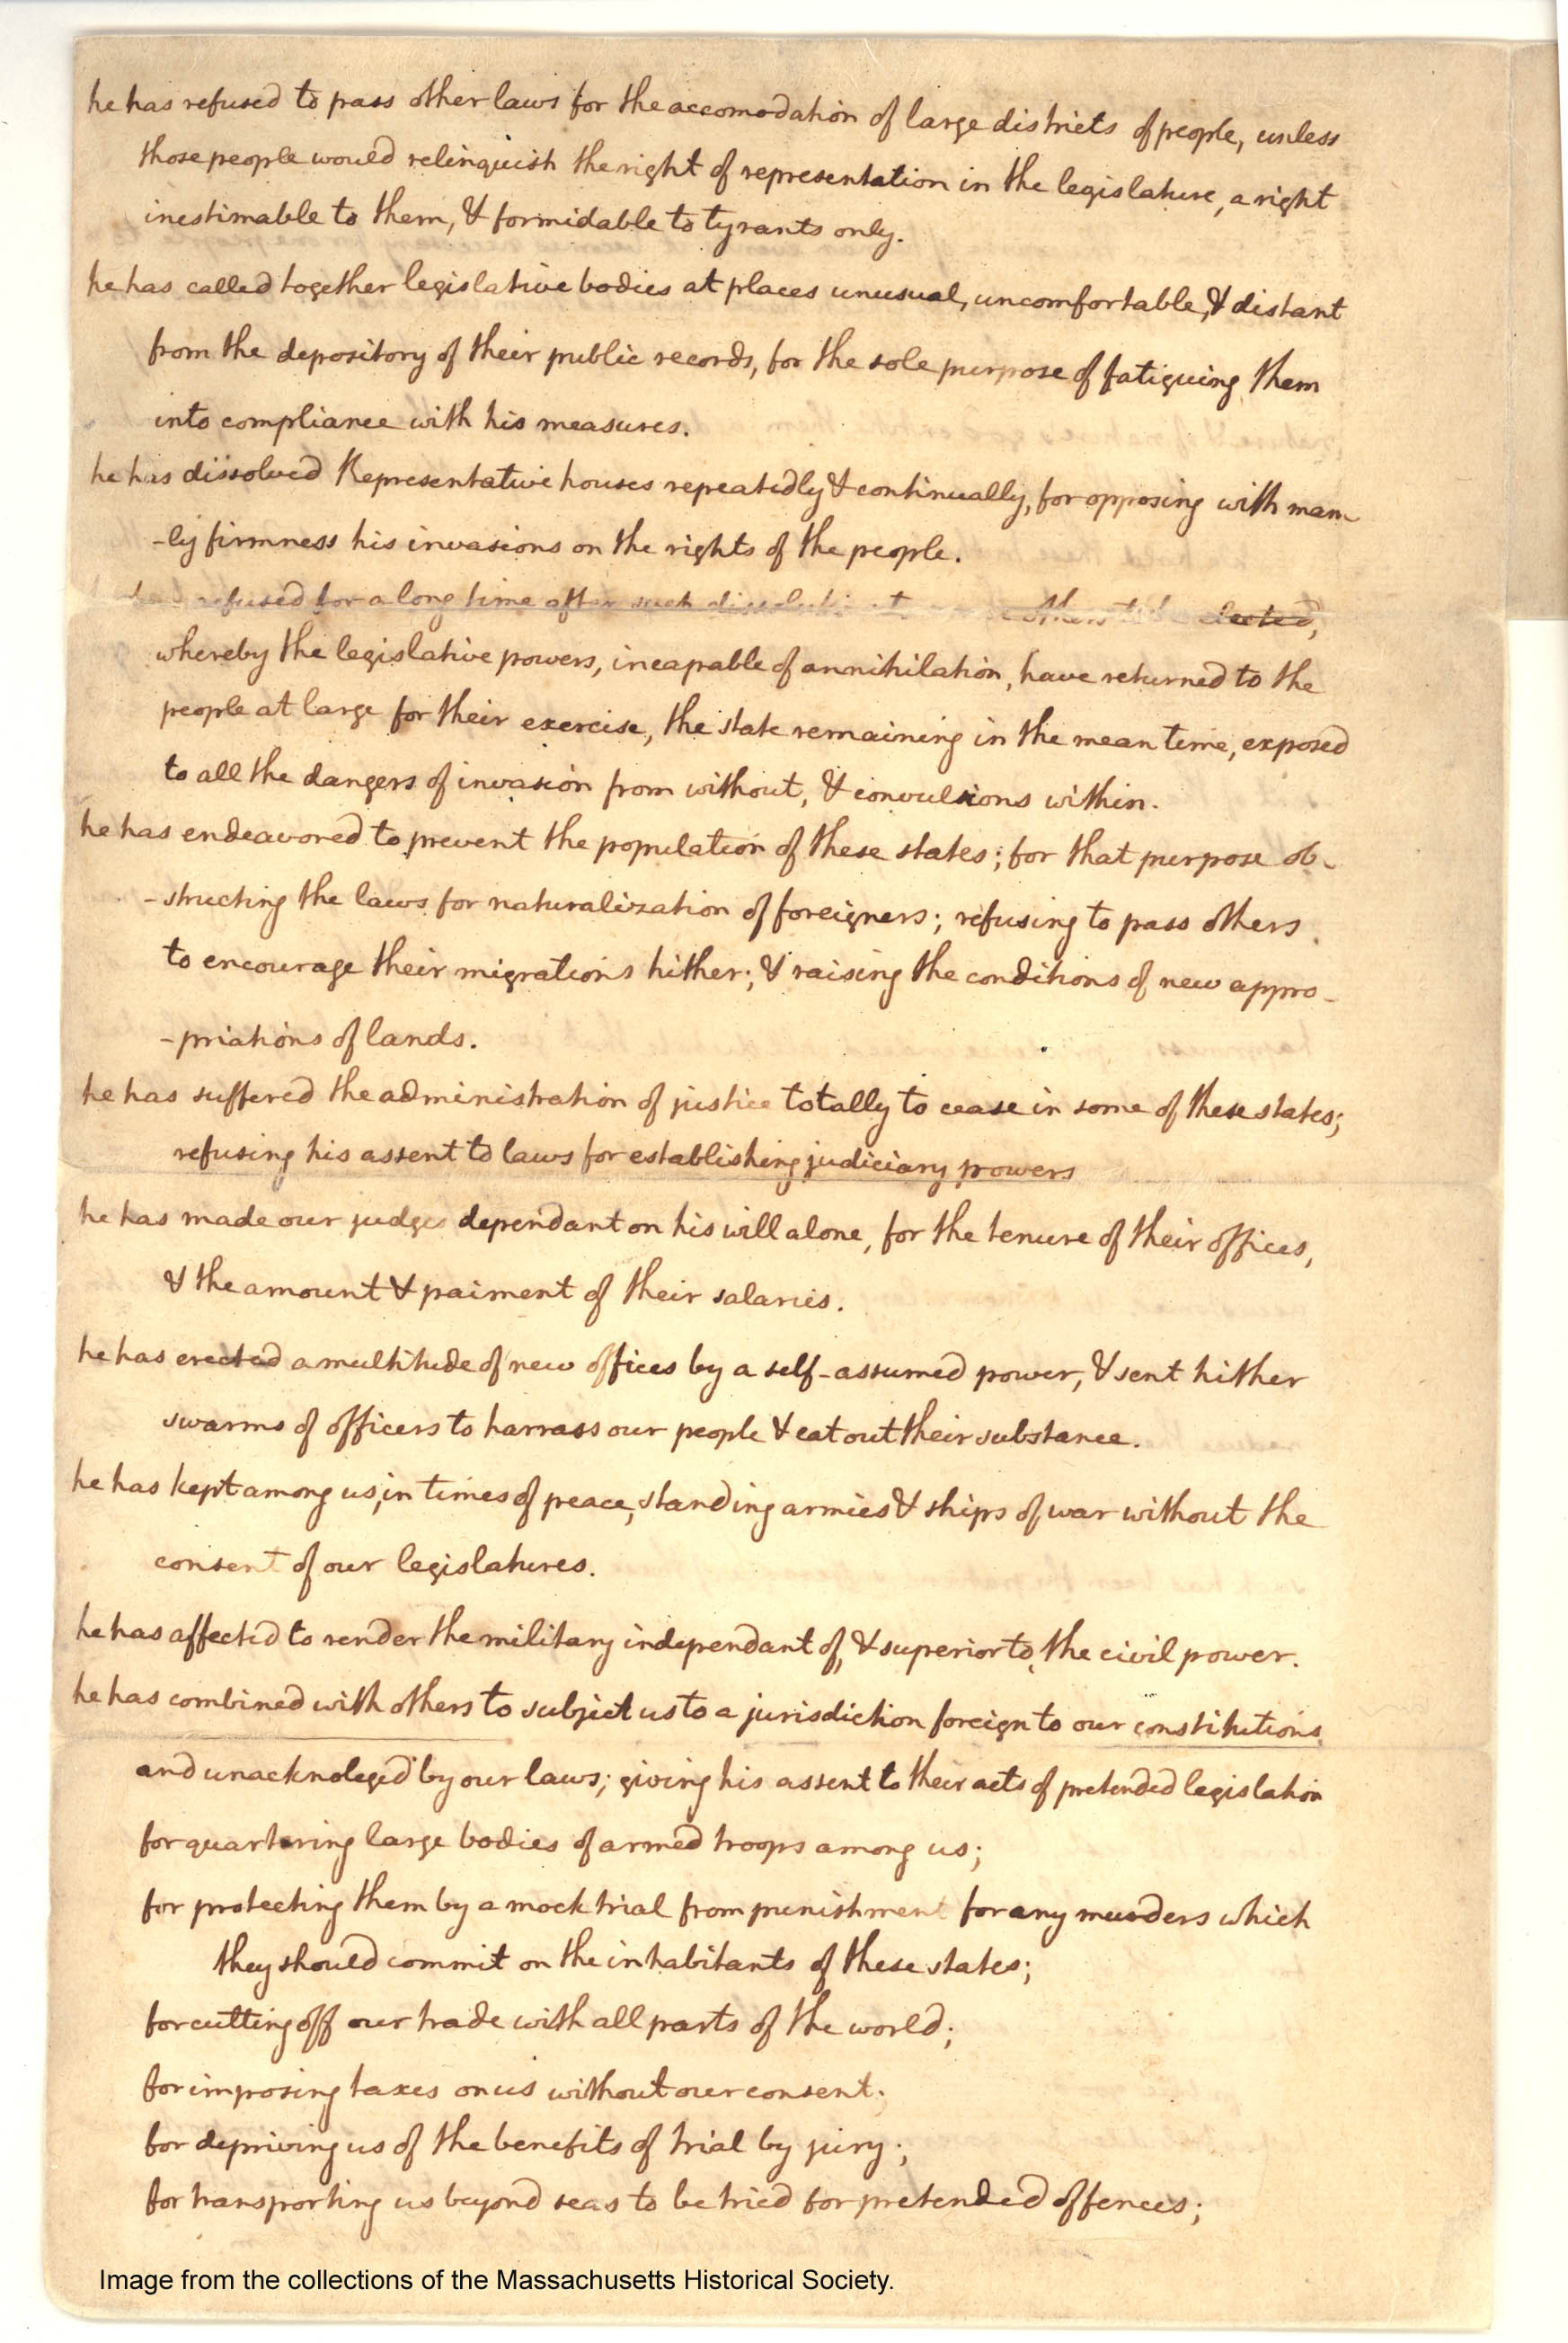 he has refused to pass other laws for the accomodation of large districts of people, unless
those people would relinquish the right of representation in the legislature, a right
inestimable to them, & formidable to tyrants only.
he has called together legislative bodies at places unusual, uncomfortable, & distant
from the depository of their public records, for the sole purpose of fatiguing them
into compliance with his measures.
he has dissolved Representative houses repeatedly & continually, for opposing with man
-ly firmness his invasions on the rights of the people.
refused for a long time after such others elected,
whereby the legislative powers, incapable of annihilation, have returned to the
people at large for their exercise, the state remaining in the mean time, exposed
to all the dangers of invasion from without, & convulsions within.
he has endeavored to prevent the population of these states; for that purpose ob-
-structing the laws for naturalization of foreigners; refusing to pass others
to encourage their migrations hither; & raising the conditions of new appro-
-priations of lands.
he has suffered the administration of justice totally to cease in some of these states;
refusing his assent to laws for establishing judiciary powers
he has made our judges dependant on his will alone, for the tenure of their offices,
& the amount & paiment of their salaries.
he has erected a multitude of new offices by a self-assumed power, & sent hither
swarms of officers to harrass our people & eat out their substance.
he has kept among us, in times of peace, standing armies & ships of war without the
consent of our legislatures.
he has affected to render the military independant of, & superior to, the civil power.
he has combined with others to subject us to a jurisdiction foreign to our constitutions
and unacknoleged by our laws; giving his assent to their acts of pretended legislation
for quartering large bodies of armed troops among us;
for protecting them by a mock trial from punishment for any murders which
they should commit on the inhabitants of these states;
for cutting off our trade with all parts of the world;
for imposing taxes on us without our consent;
for depriving us of the benefits of trial by jury;
for transporting us beyond seas to be tried for pretended offences;
Image from the collections of the Massachusetts Historical Society.